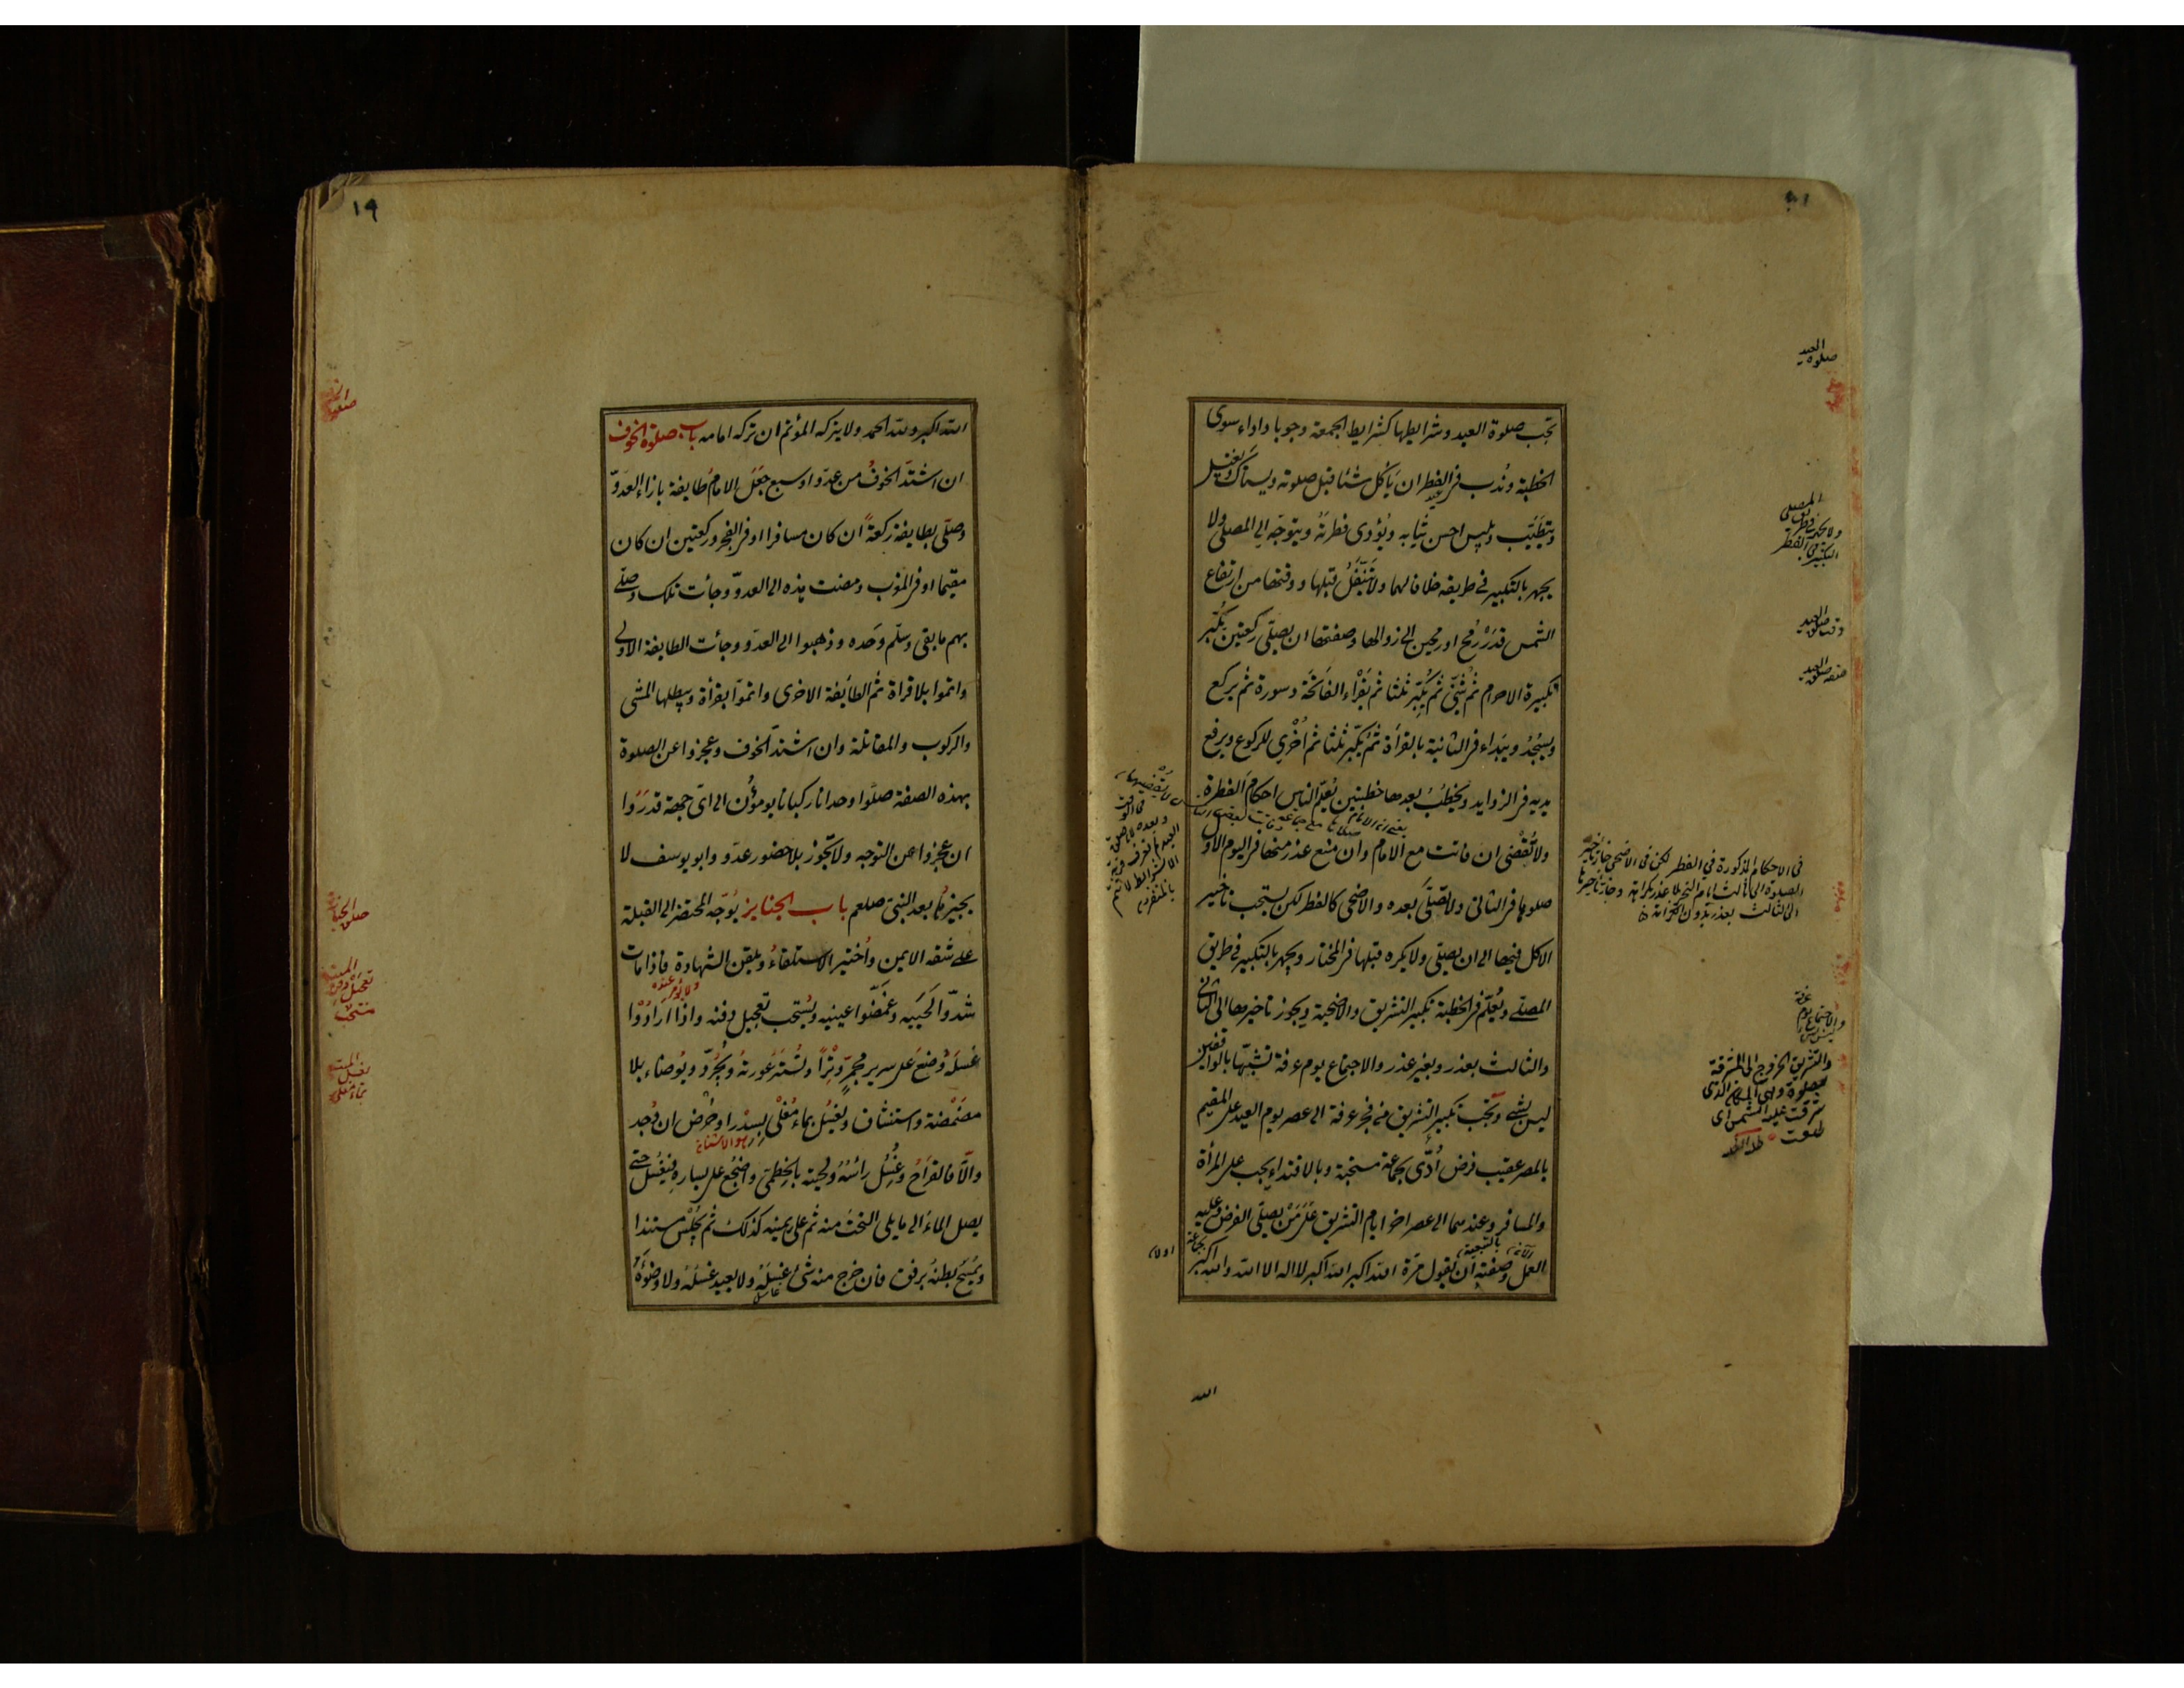 تجب صلوة العيد وشرايطها كشرايط الجمعة وجوبا واداء سوى
الخطبة وندب فى الفطر ان ياكل شئا قبل صلوته ويستاك ويغتسل
ويتطيّب ويلبس احسن ثيابه ويؤدى فطرته ويتوجه الى المصلى ولا
يجهر بالتكبير فى طريقه خلافا لهما ولا يتنفل قبلها ووقتها من ارتفاع
الشمس قدر رمح او رمحين الى زوالها وصفتها ان يصلّى ركعتين يكبر
تكبيرة الاحرام ثم يثنى ثم يكبّر ثلثا ثم يقراء الفاتحة وسورة ثم يركع
ويسجد ويبداء فى الثانية بالقراءة ثم يكبّر ثلثا ثم اخرى للركوع ويرفع
يديه فى الزوايد ويخطب بعدها خطبتين يعلم الناس احكام الفطرة
ولا تقضى ان فاتت مع الامام وان منع عذر منها فى اليوم الاول
صلوها فى الثانى ولا تصلّى بعده والاضحى كالفطر لكن يستحب تاخير
الاكل فيها الى ان يصلّى ولا يكره قبلها فى المختار ويجهر بالتكبير فى طريق
المصلى ويعلّم فى الخطبة تكبير التشريق والاضحية ويجوز تاخيرها الى الثانى
والثالث بعذر وبغير عذر والاجتماع يوم عرفة تشبّها بالواقفين
ليس بشى ويجب تكبير التشريق من فجر عرفة الى عصر يوم العيد على المقيم
بالمصر عقيب فرض أدّى بجماعة مستحبة وبالاقتداء يجب على المرأة
والمسافر وعندهما الى عصر اخر ايام التشريق على من يصلّى الفرض وعليه
العمل وصفته ان يقول مرة الله اكبر الله اكبر لا اله الا الله والله اكبر
الله
صلوة العيد
ولا يجهر فى طريق المصلى
التكبير فى الفطر
وقت صلوة العيد
صفة صلوة العيد
فى الاحكام المذكورة فى الفطر لكن فى الاضحى جاز تاخير
الصلوة الى ثالث ايام النحر بلا عذر بكراهة وجاز تاخيرها
الى الثالث بعذر بدون الكراهة
والاجتماع يوم عرفة
ليس بشى
والتشريق الخروج الى المشرقة
للصلوة وهى المكان الذى
شرقت عليه الشمس اى
طلعت
١٩
الله اكبر ولله الحمد ولا يتركه المؤتم ان تركه امامه باب صلوة الخوف
ان اشتد الخوف من عدو او سبع جعل الامام طايفة بازاء العدوّ
وصلّى بطايفة ركعة ان كان مسافرا او فى الفجر وركعتين ان كان
مقيما او فى المغرب ومضت هذه الى العدوّ وجأت تلك وصلّى
بهم ما بقى وسلّم وحده وذهبوا الى العدو وجأت الطايفة الاولى
واتموا بلا قراة ثم الطائفة الاخرى واتموا بقرأة ويبطلها المشى
والركوب والمقاتلة وان اشتد الخوف وعجزوا عن الصلوة
بهذه الصفة صلوا وحدانا ركبانا يومؤن الى اىّ جهة قدروا
ان عجزوا عن التوجه ولا تجوز بلا حضور عدو وابو يوسف لا
يجيزها بعد النبىّ صلعم باب الجنايز يوجّه المحتضر الى القبلة
على شقه الايمن واختير الاستلقاء ويلقن الشهادة فاذا مات
شدّوا لحييه وغمّضوا عينيه ويستحب تعجيل دفنه واذا ارادوا
غسله وضع على سرير مجمّر وترا وتستر عورته ويجرّد ويوضاء بلا
مضمضة واستنشاق ويغسل بماء مغلّى بسدر او حرض ان وجد
والّا فالقراح وغسل رأسه ولحيته بالخطمى واضجع على يساره فيغسل حتى
يصل الماء الى ما يلى التخت منه ثم على يمينه كذلك ثم يجلس مستندا
ويمسح بطنه برفق فان خرج منه شئ غسله ولا يعيد غسله ولا وضوءه
تعجيل دفن الميت
مستحب